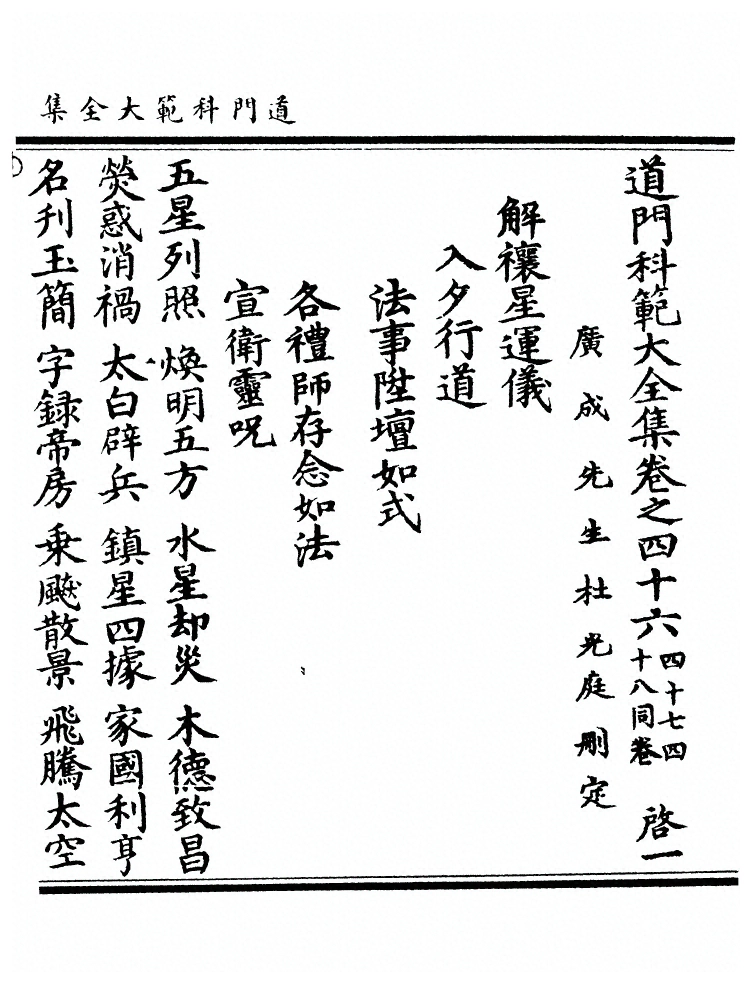 道門科範大全集
道門科範大全集卷之四十六 四十七四十八同卷 啓一
廣成先生杜光庭刪定
解禳星運儀
入夕行道
法事陞壇如式
各禮師存念如法
宣衛靈呪
五星列照 煥明五方 水星却災 木德致昌
熒惑消禍 太白辟兵 鎮星四據 家國利亨
名刊玉簡 字録帝房 乗飈散景 飛騰太空